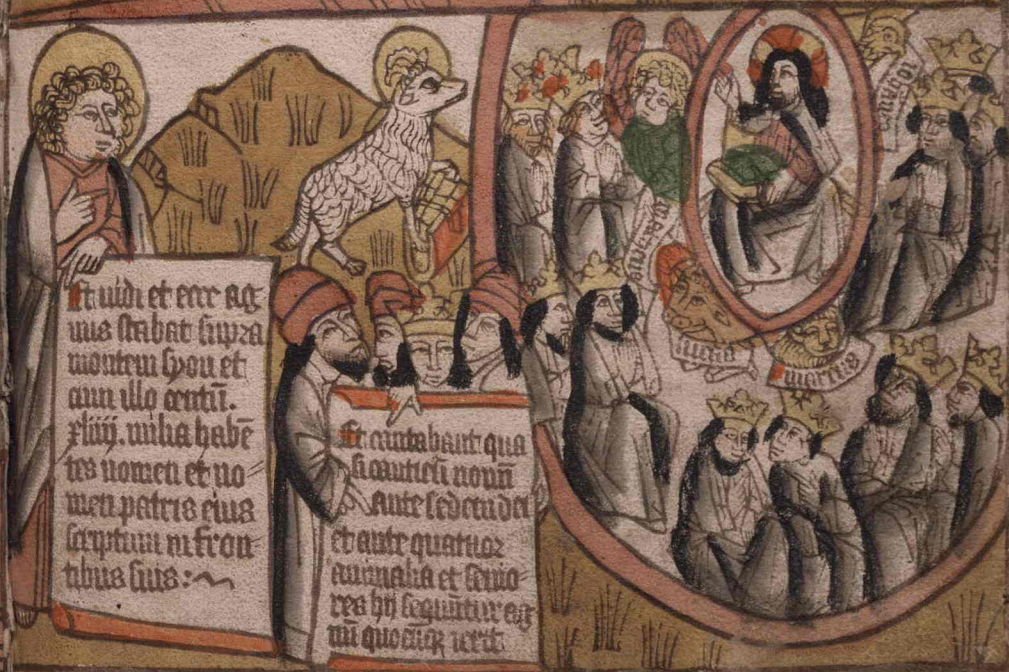 Et uidi et ecce ag
nus stabat supra
montem syon et
cum illo centū.
xliiij. milia habē
tes nomen et no
men patris eius
scriptum in fron
tibus suis :
Et cantabant qua
si canticū nouū
Ante sedem dei
et ante quatuor
animalia et senio
res hij sequūtur ag
nū quocūq ierit
matheus
lucas
marcus